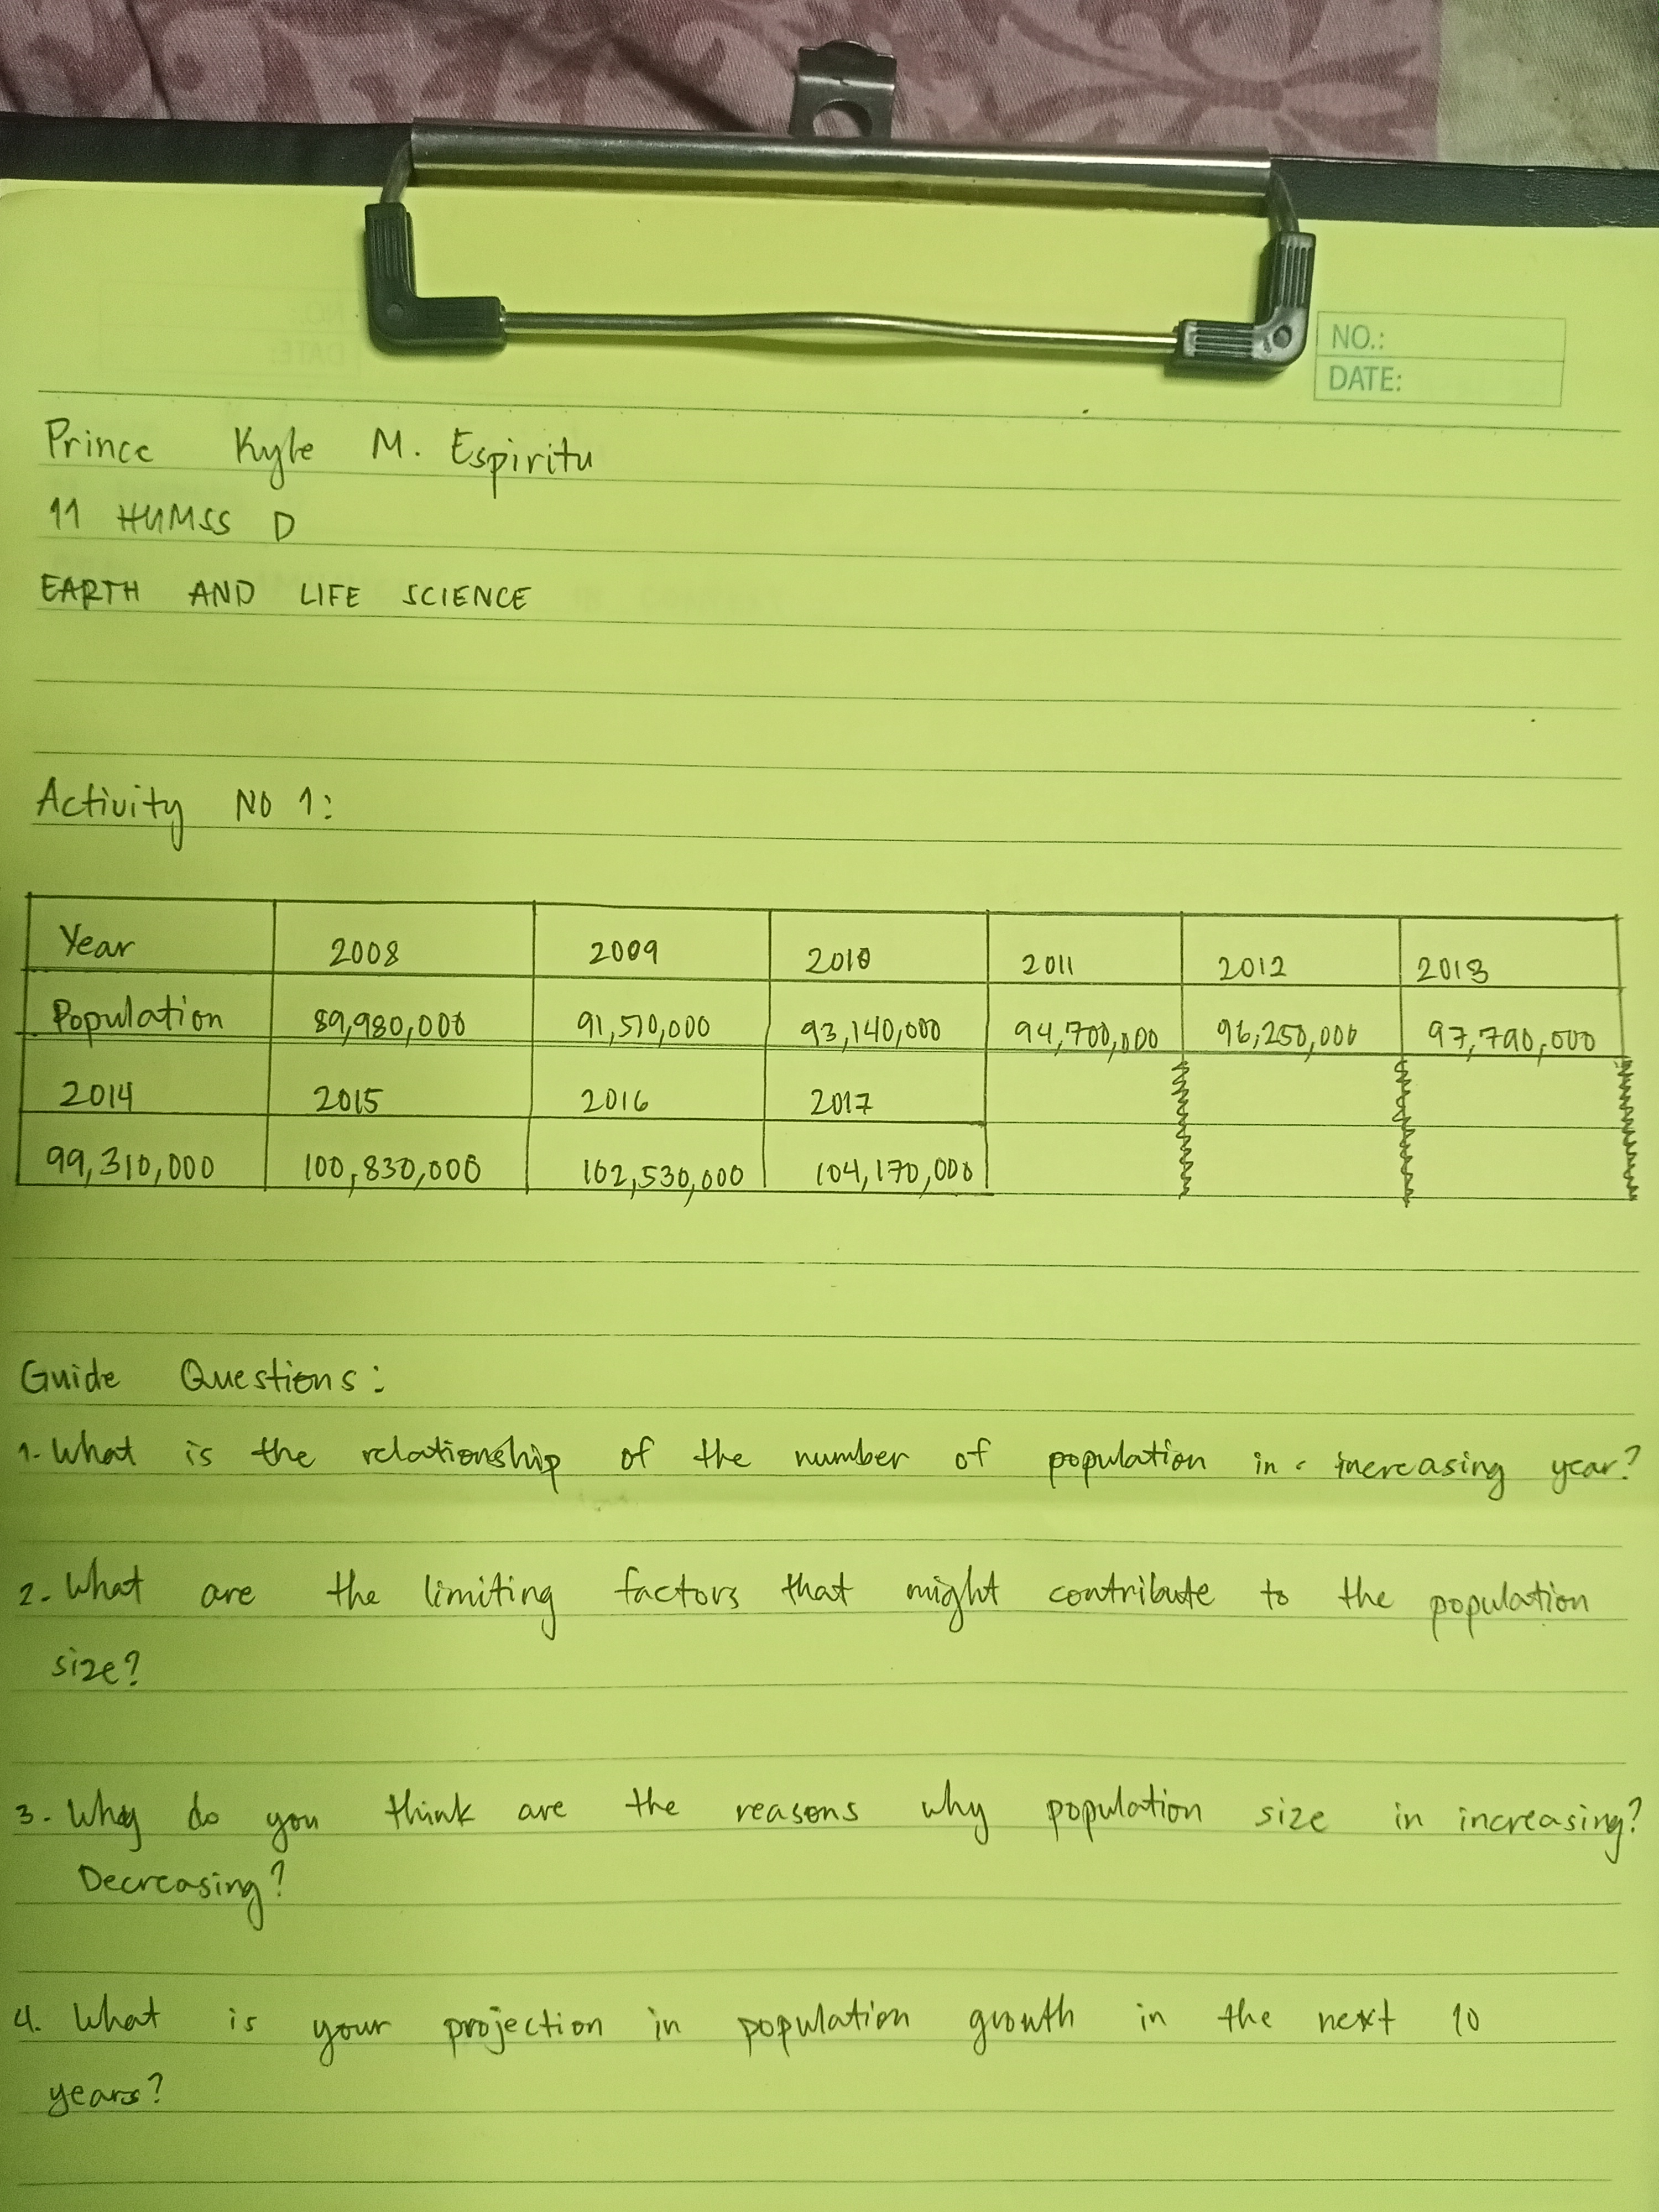 NO.:
DATE:
Prince Kyle M. Espiritu
11 HUMSS D
EARTH AND LIFE SCIENCE
Activity No 1:
Year 2008 2009 2010 2011 2012 2013
Population 89,980,000 91,510,000 93,140,000 94,700,000 96,250,000 97,790,000
2014 2015 2016 2017
99,310,000 100,830,000 102,530,000 104,170,000
Guide Questions:
1. What is the relationship of the number of population in increasing year?
2. What are the limiting factors that might contribute to the population
size?
3. Why do you think are the reasons why population size in increasing?
Decreasing?
4. What is your projection in population growth in the next 10
years?